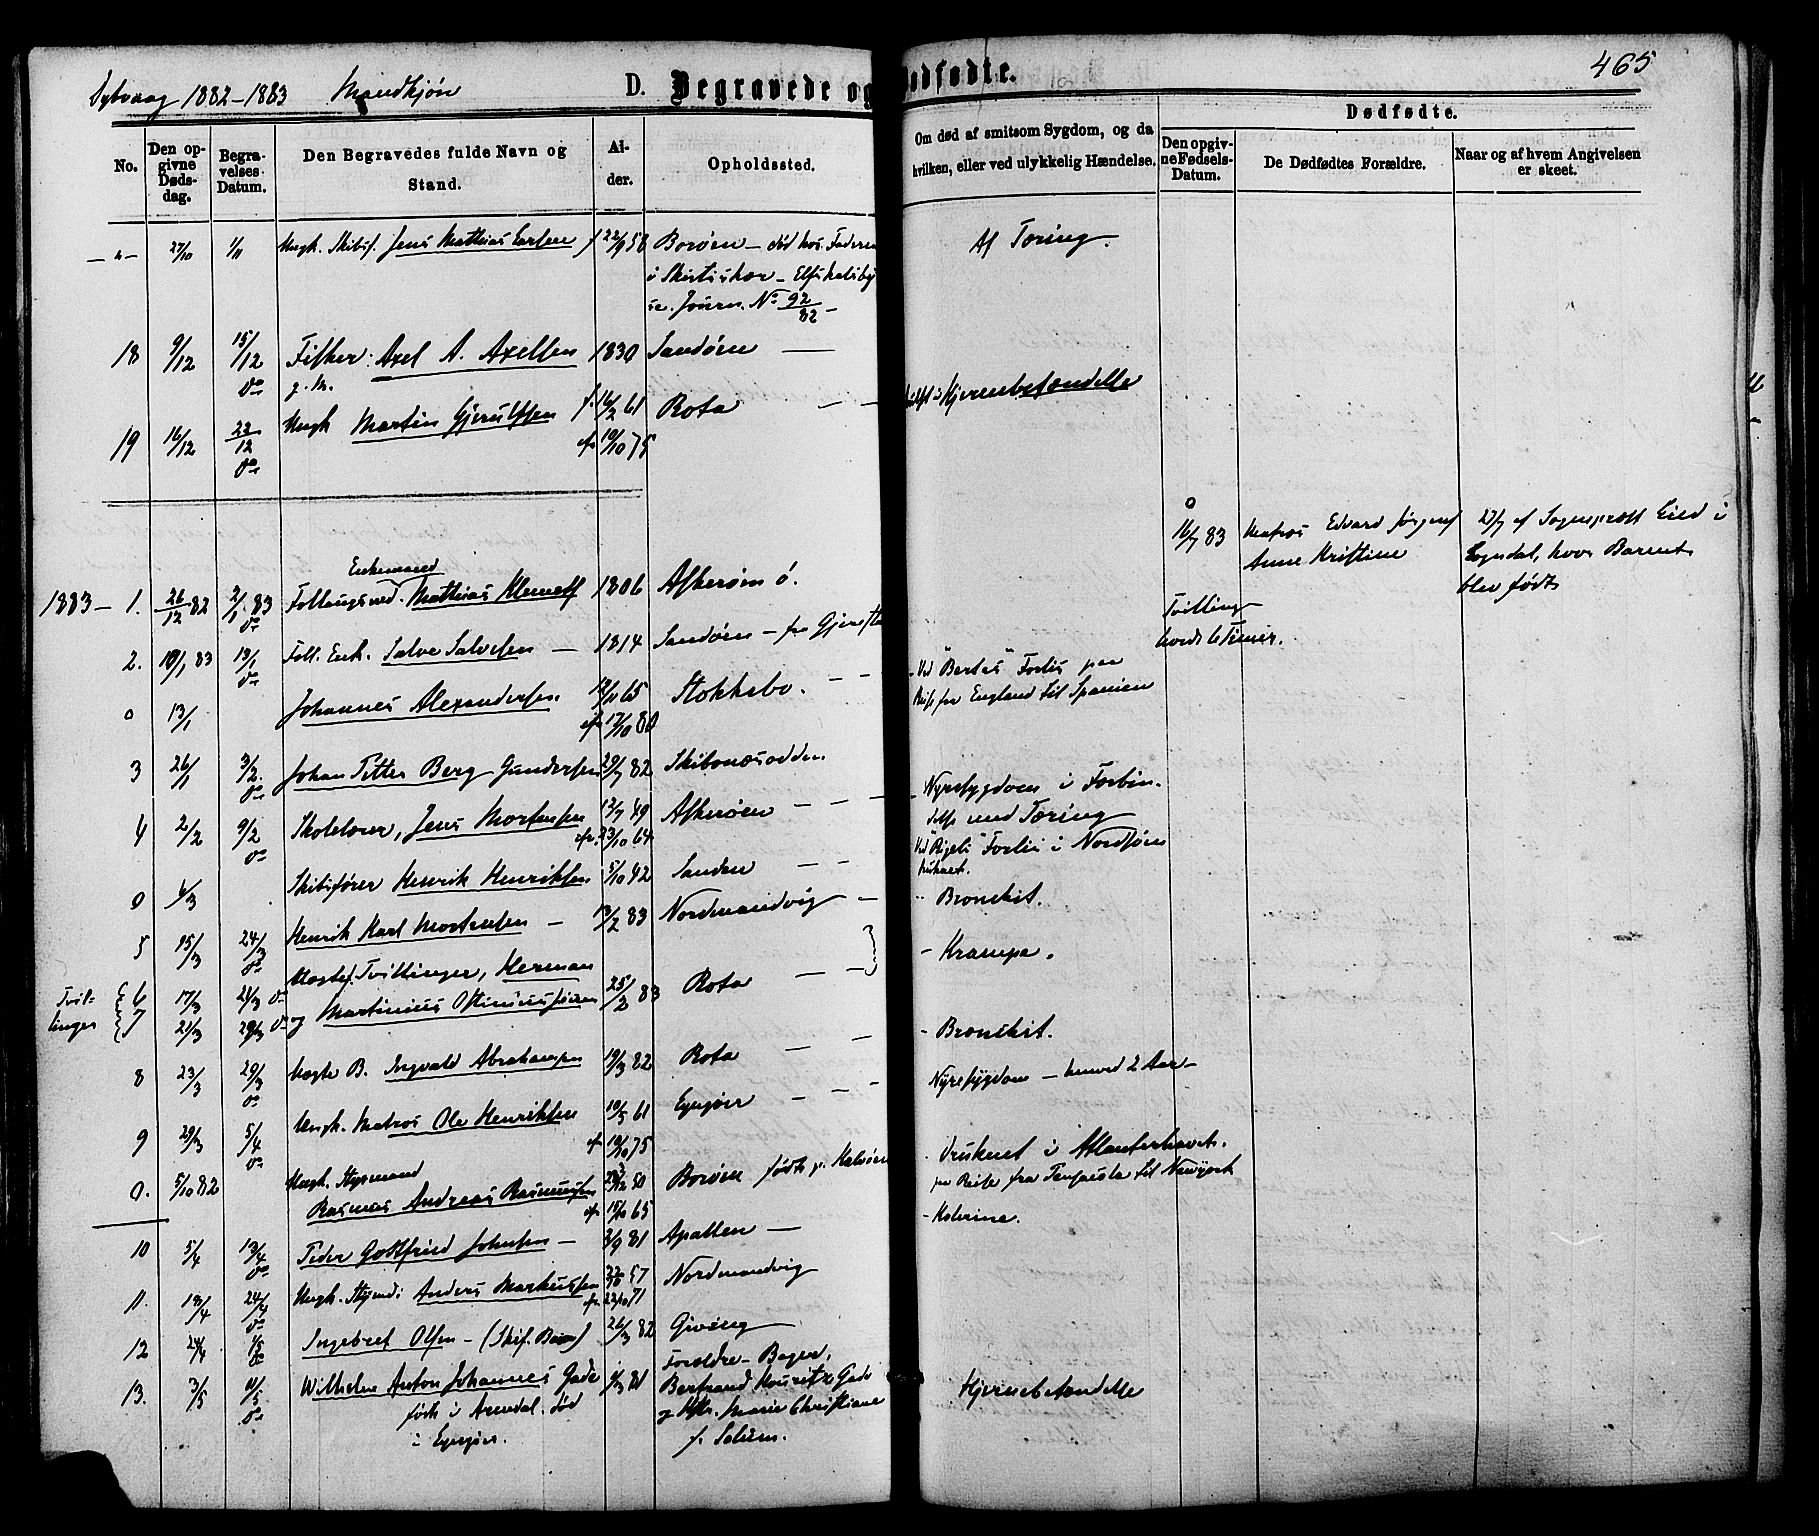 Dybvaag 1882-1883 Mandkjøn D. Begravede og Dødfødte. 465
No.
Den opgivne Dødsdag.
Begravelses Datum.
Den Begravedes fulde Navn og Stand.
Alder.
Opholdssted.
Om død af smitsom Sygdom, og da hvilken, eller ved ulykkelig Hændelse.
Dødfødte.
Den opgivne Fødsels-Datum.
De Dødfødtes Forældre.
Naar og af hvem Angivelsen er skeet.
— " — 27/10 1/11 Ungk. Skibsf. Jens Mathias Larsen f 22/9 58 Borøen — død hos Faderen
i — Elfskelsby
se Journ. No 92/82 —
Af Tæring.
18 9/12 15/12 Fisker Axel A. Axelsen 1830 Sandøen —
do g. M.
19 16/12 22/12 Ungk Martin Gjerulfsen f. 16/2 61 Rota — —
do cfr 10/10 75
Hjernebetændelse
0
16/7 83 Matros Edvard Jørgens. 27/7 af Sogneprest Eied i
Anne Kristine Sogndal, hvor Barnet
blev født
Tvilling
levede 6 Timer.
Enkemand
1883 — 1. 26/12 82 2/1 83 Follaugsmd. Mathias Klemets. 1806 Askerøen ø.
do
2. 10/1 83 19/1 Foll. Enk. Salve Salvesen — 1814 Sandøen — fra Gjerst
do
0 13/1 Johannes Alexandersen 12/11 65 Stokkebo. — —
cfr 17/10 80
- Ved "Bertas" Forlis paa
Reise fra England til Spanien
3 26/1 3/2 Johan Petter Berg Gundersen 29/7 82 Skibsnæsodden
do
4 2/2 9/2 Skolelærer, Jens Mortensen 12/7 49 Askerøen — — —
do cfr. 23/10 64
- Nyresygdom i Forbin-
delse med Tæring
0 4/3 Skibsfører Henrik Henriksen 5/10 42 Sanden — —
Ved "Rigels" Forlis i Nordsøen
druknet.
5 15/3 24/3 Henrik Karl Mortensen — 13/2 83 Nordmandvig —
do
- Bronchit.
Uægtef. Tvillinger, Herman
Tvil- 6 17/3 24/3 do
linger 7 21/3 29/3 do og Martinius Osmundsøner 25/2 83 Rota — —
- Krampe.
8 23/3 29/3 Uægte B. Ingvald Abrahamsen 19/3 82 Rota — —
do
- Bronchit.
9 29/3 5/4 Ungk. Matros Ole Henriksen 10/5 61 Egesjær — —
do cfr 10/10 75
Nyresygdom — henved 2 Aar —
0. 5/10 82 Ungk. Styrmand
Rasmus Andreas Rasmussen 50 Borøen født p. Kalvøen
cfr 15/10 65
- Druknet i Atlanterhavet
paa Reise fra til Newyork
10 5/4 13/4 Peder Gottfried Johnsen — 3/9 81 Apalten —
do
- Kolerine.
11. 18/4 24/4 Ungk. Styrmd: Anders Markussen 57 Nordmandvig
do cfr. 22/10 71
12 24/4 1/5 Ingebret Olsen — (Skif. Barn) 26/3 82 Giving
do
13. 3/5 11/5 Wilhelm Anton Johannes Gade 81 Forældre — Bager,
do født i Arendal. død Bertrand Mouritz Gade
i Egesjær. og Hstr. Marie Christiane
f. Solum.
Hjernebetændelse